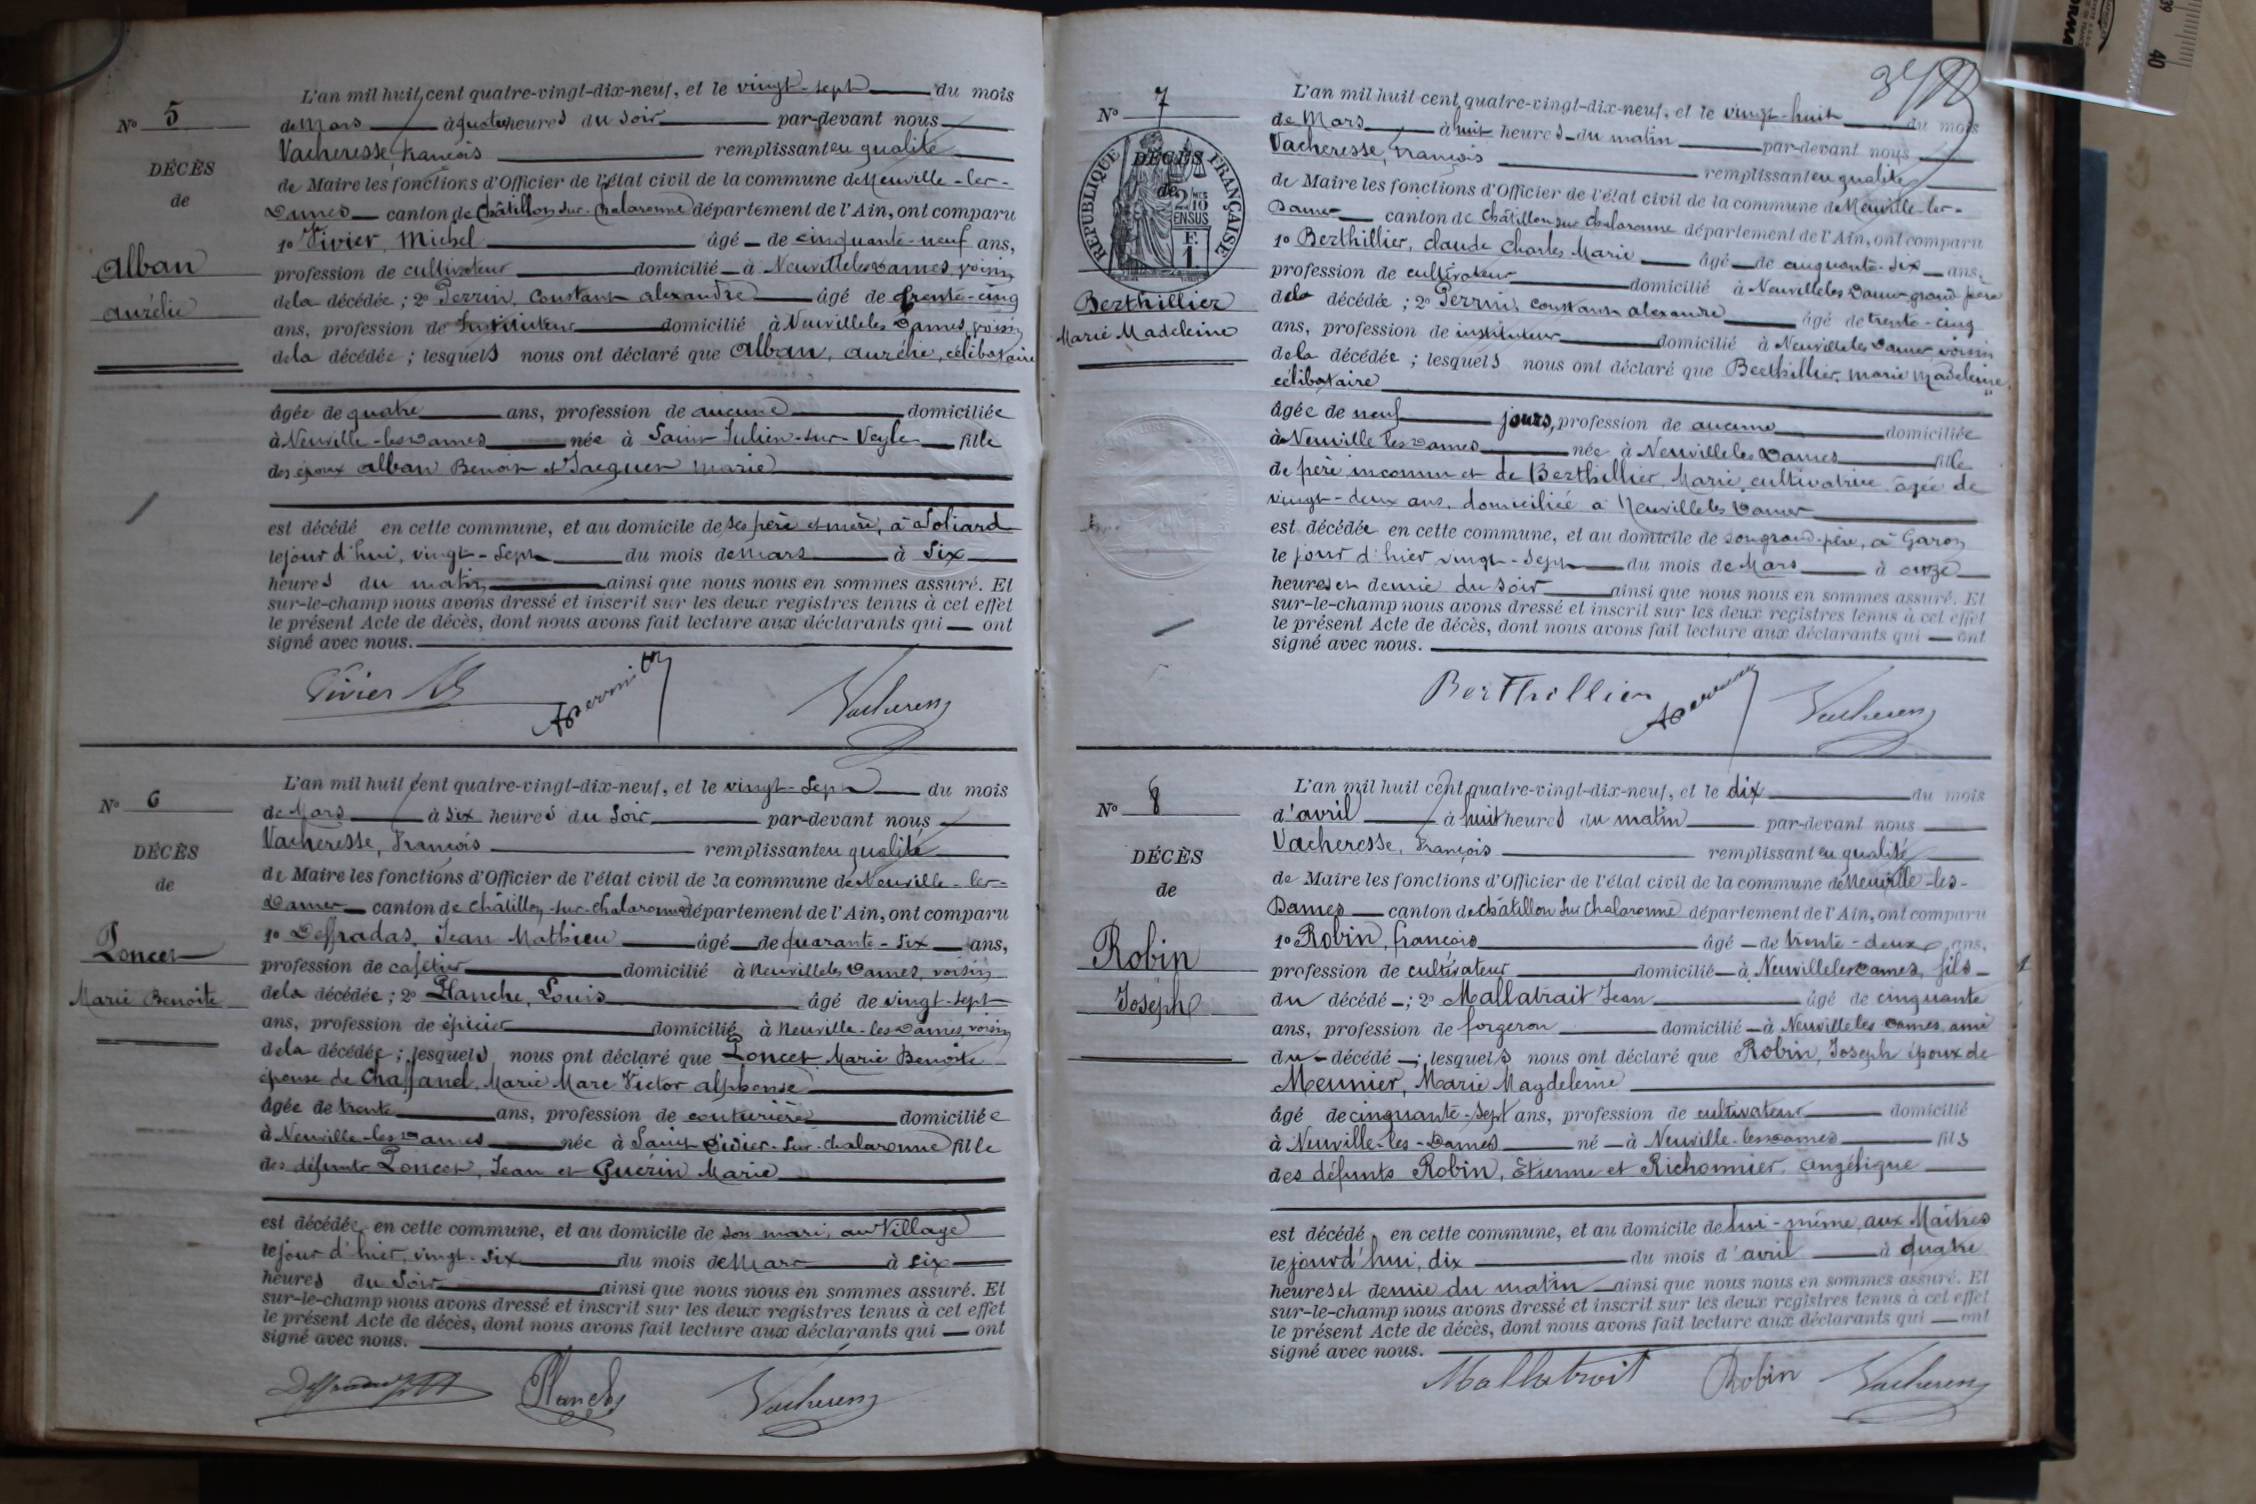 N° 5
DÉCÈS
de
Alban
Aurélie
L'an mil huit cent quatre-vingt-dix-neuf, et le vingt-sept du mois
de Mars à quatre heures du soir par-devant nous
Vacheresse, François remplissant en qualité
de Maire les fonctions d'Officier de l'état civil de la commune de Neuville-les-
Dames canton de Châtillon-sur-Chalaronne département de l'Ain, ont comparu
1° Vivier, Michel âgé de cinquante-neuf ans,
profession de cultivateur domicilié à Neuville les Dames, voisin
de la décédée ; 2° Perrin, Constant Alexandre âgé de trente-cinq
ans, profession de Instituteur domicilié à Neuville les Dames, voisin
de la décédée ; lesquels nous ont déclaré que Alban, Aurélie, célibataire
âgée de quatre ans, profession de aucune domiciliée
à Neuville-les-Dames née à Saint-Julien-sur-Veyle fille
des époux Alban Benoit et Jacquet Marie
est décédé en cette commune, et au domicile de ses père et mère, à Soliard
le jour d'hui, vingt-sept du mois de Mars à six
heures du matin ainsi que nous nous en sommes assuré. Et
sur-le-champ nous avons dressé et inscrit sur les deux registres tenus à cet effet
le présent Acte de décès, dont nous avons fait lecture aux déclarants qui ont
signé avec nous.
Vivier
Vacheresse
N° 6
DÉCÈS
de
Poncet
Marie Benoite
L'an mil huit cent quatre-vingt-dix-neuf, et le vingt-sept du mois
de Mars à six heures du soir par-devant nous
Vacheresse, François remplissant en qualité
de Maire les fonctions d'Officier de l'état civil de la commune de Neuville-les-
Dames canton de Châtillon-sur-Chalaronne département de l'Ain, ont comparu
1° Desfradas, Jean Mathieu âgé de quarante-six ans,
profession de cafetier domicilié à Neuville les Dames, voisin
de la décédée ; 2° Planche, Louis âgé de vingt-sept
ans, profession de épicier domicilié à Neuville-les-Dames, voisin
de la décédée ; lesquels nous ont déclaré que Poncet Marie Benoite
épouse de Chaffanel, Marie Marc Victor Alphonse
âgée de trente ans, profession de couturière domiciliée
à Neuville-les-Dames née à Saint Didier-sur-Chalaronne fille
des défunts Poncet, Jean et Guérin Marie
est décédée en cette commune, et au domicile de son mari, au Village
le jour d'hier, vingt-six du mois de Mars à six
heures du soir ainsi que nous nous en sommes assuré. Et
sur-le-champ nous avons dressé et inscrit sur les deux registres tenus à cet effet
le présent Acte de décès, dont nous avons fait lecture aux déclarants qui ont
signé avec nous.
Planche
Vacheresse
N° 7
RÉPUBLIQUE FRANÇAISE
DÉCÈS
de
Berthillier
Marie Madeleine
L'an mil huit cent quatre-vingt-dix-neuf, et le vingt-huit du mois
de Mars à huit heures du matin par-devant nous
Vacheresse, François remplissant en qualité
de Maire les fonctions d'Officier de l'état civil de la commune de Neuville-les-
Dames canton de Châtillon sur Chalaronne département de l'Ain, ont comparu
1° Berthillier, Claude Charles Marie âgé de cinquante-six ans,
profession de cultivateur domicilié à Neuville les Dames grand père
de la décédée ; 2° Perrin, Constant Alexandre âgé de trente-cinq
ans, profession de instituteur domicilié à Neuville les Dames, voisin
de la décédée ; lesquels nous ont déclaré que Berthillier, Marie Madeleine,
célibataire
âgée de neuf jours, profession de aucune domiciliée
à Neuville les Dames née à Neuville les Dames fille
de père inconnu et de Berthillier, Marie, cultivatrice âgée de
vingt-deux ans, domiciliée à Neuville les Dames
est décédée en cette commune, et au domicile de son grand-père, à Garon
le jour d'hier vingt-sept du mois de Mars à onze
heures et demie du soir ainsi que nous nous en sommes assuré. Et
sur-le-champ nous avons dressé et inscrit sur les deux registres tenus à cet effet
le présent Acte de décès, dont nous avons fait lecture aux déclarants qui ont
signé avec nous.
Berthillier
Vacheresse
N° 8
DÉCÈS
de
Robin
Joseph
L'an mil huit cent quatre-vingt-dix-neuf, et le dix du mois
d'avril à huit heures du matin par-devant nous
Vacheresse, François remplissant en qualité
de Maire les fonctions d'Officier de l'état civil de la commune de Neuville-les-
Dames canton de Châtillon sur Chalaronne département de l'Ain, ont comparu
1° Robin, François âgé de trente-deux ans,
profession de cultivateur domicilié à Neuville les Dames, fils
du décédé ; 2° Mallatrait Jean âgé de cinquante
ans, profession de forgeron domicilié à Neuville les Dames, ami
du décédé ; lesquels nous ont déclaré que Robin, Joseph époux de
Meunier, Marie Magdeleine
âgé de cinquante-sept ans, profession de cultivateur domicilié
à Neuville-les-Dames né à Neuville-les-Dames fils
des défunts Robin, Étienne et Richonnier, Angélique
est décédé en cette commune, et au domicile de lui-même, aux Maîtres
le jourd'hui, dix du mois d'avril à quatre
heures et demie du matin ainsi que nous nous en sommes assuré. Et
sur-le-champ nous avons dressé et inscrit sur les deux registres tenus à cet effet
le présent Acte de décès, dont nous avons fait lecture aux déclarants qui ont
signé avec nous.
Mallatrait Robin Vacheresse